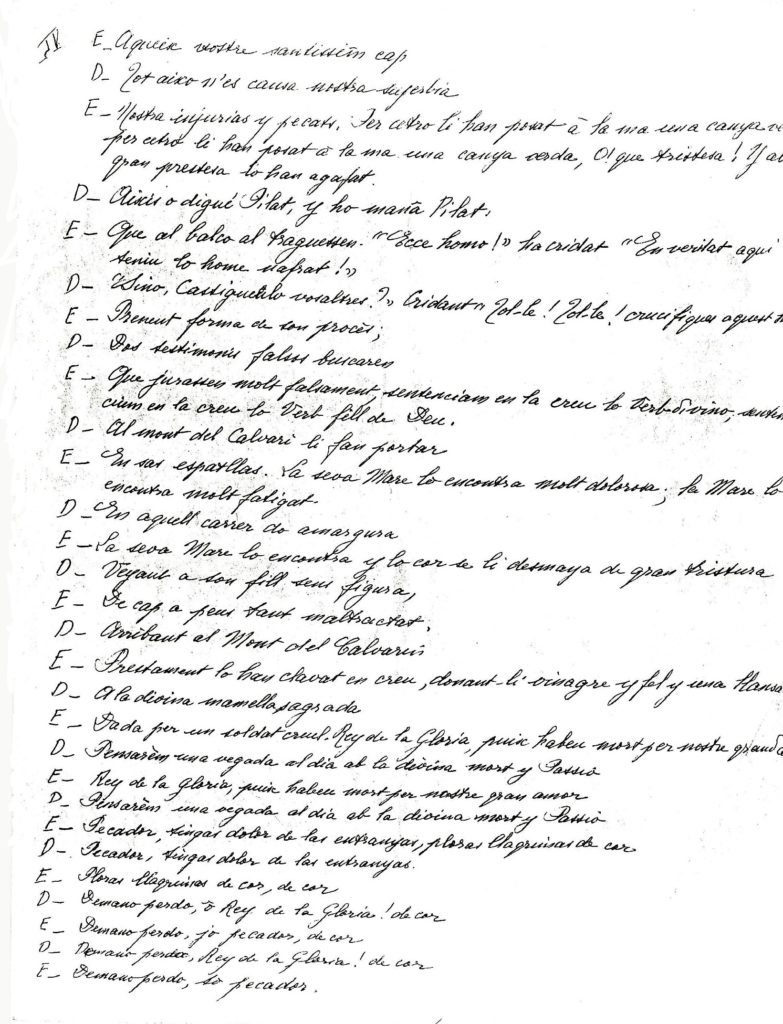 IV
E - Aqueix vostre santissim cap
D - Tot aixo n'es causa nostra superbia
E - Nostra injurias y pecats. Per cetro li han posat à la ma una canya ve
per cetro li han posat à la ma una canya verda, O! que tristesa! Y a
gran prestesa lo han agafat.
D - Aixis o digué Pilat, y ho mana Pilat.
E - Que al balco al traguessen. "Ecce homo!" ha cridat "En veritat aqui
teniu lo home nafrat!"
D - "Sino, Castigueulo vosaltres?" Cridant "Tol-le! Tol-le! crucifiques aquest
E - Prenent forma de son procés;
D - Dos testimonis falsos buscaren
E - Que jurassen molt falsament, sentenciam en la creu lo Verb divino, senten
cium en la creu lo Verb fill de Deu.
D - Al mont del Calvari li fan portar
E - En sas espatllas. La seva Mare lo encontra molt dolorosa; la Mare lo
encontra molt fatigat.
D - En aquell carrer de amargura
E - La seva Mare lo encontra y lo cor se li desmaya de gran tristura
D - Veyant a son fill sens figura,
E - De cap a peus tant maltractat.
D - Arribant al Mont del Calvari
E - Prestament lo han clavat en creu, donant-li vinagre y fel y una llansa
D - A la divina mamella sagrada
E - Dada per un soldat cruel. Rey de la Gloria, puix habeu mort per nostre gran
D - Pensarèm una vegada al dia ab la divina mort y Passio
E - Rey de la Gloria, puix habeu mort per nostre gran amor
D - Pensarèm una vegada al dia ab la divina mort y Passio
E - Pecador, tingas dolor de las entranyas, ploras llagrimas de cor
D - Pecador, tingas dolor de las entranyas.
E - Ploras llagrimas de cor, de cor
D - Demano perdo, ò Rey de la Gloria! de cor
E - Demano perdo, jo pecador, de cor
D - Demano perdo, Rey de la Gloria! de cor
E - Demano perdo, jo pecador.